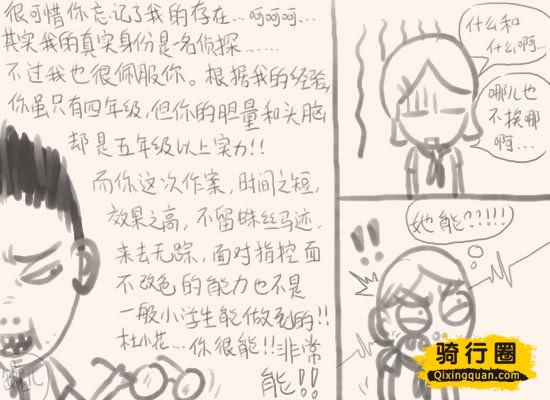 很可惜你忘记了我的存在…呵呵呵…
其实我的真实身份是名侦探……
不过我也很佩服你。根据我的经验,
你虽只有四年级,但你的胆量和头脑
却是五年级以上实力!!
而你这次作案,时间之短,
效果之高,不留蛛丝马迹,
来去无踪,面对指控面
不改色的能力也不是
一般小学生能做到的!!
杜小花…你很能!!非常
能!!
什么和
什么啊…
哪儿也
不挨哪
啊…
她能??!!!
!!
骑行圈
Qixingquan.com